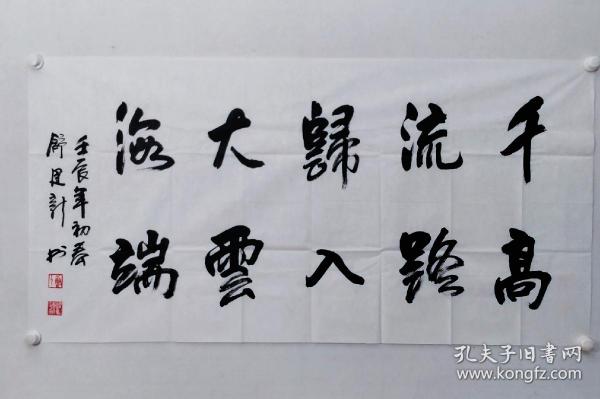 千流歸大海
高路入雲端
壬辰年初春
舒建新书
孔夫子旧书网
www.kongfz.com